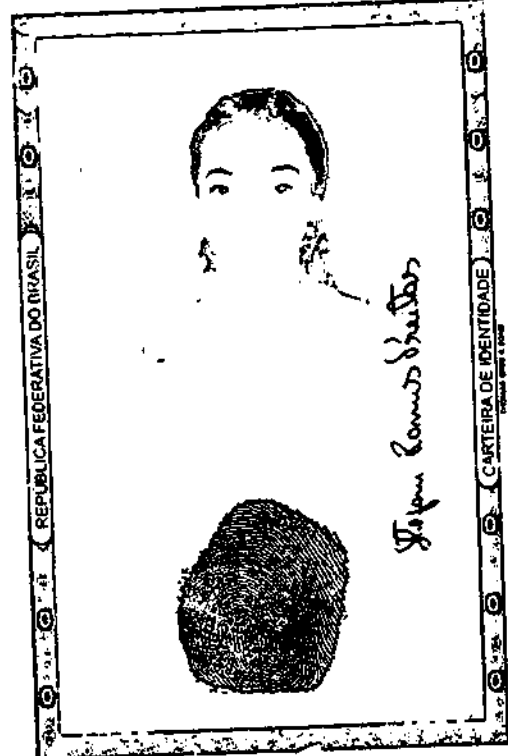 REPÚBLICA FEDERATIVA DO BRASIL
Ramos Freitas
CARTEIRA DE IDENTIDADE